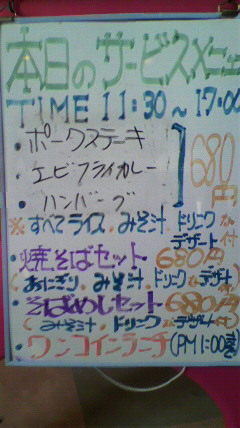 本日のサービスメニュー
TIME 11:30~17:00
・ポークステーキ
・エビフライカレー
・ハンバーグ
680円
※すべてライス、みそ汁、ドリンク
デザート付
・焼そばセット 680円
(おにぎり、みそ汁、ドリンク、デザート付)
・そばめしセット 680円
(みそ汁、ドリンク、デザート付)
ワンコインランチ(PM1:00まで)